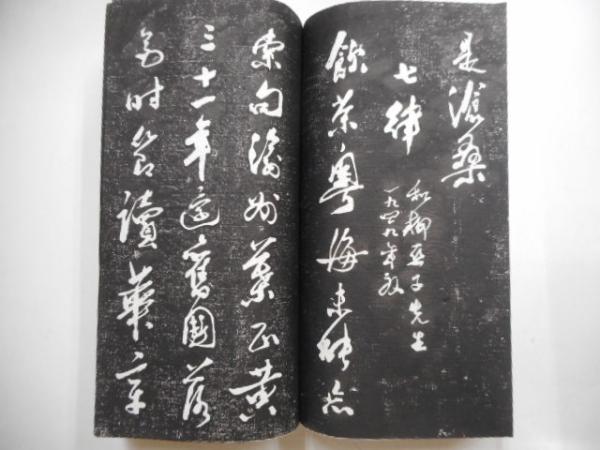 是滄桑
七律
和柳亞子先生
一九四九年
飲茶粵海未能忘
索句渝州葉正黄
三十一年還舊國落
花时節讀華章